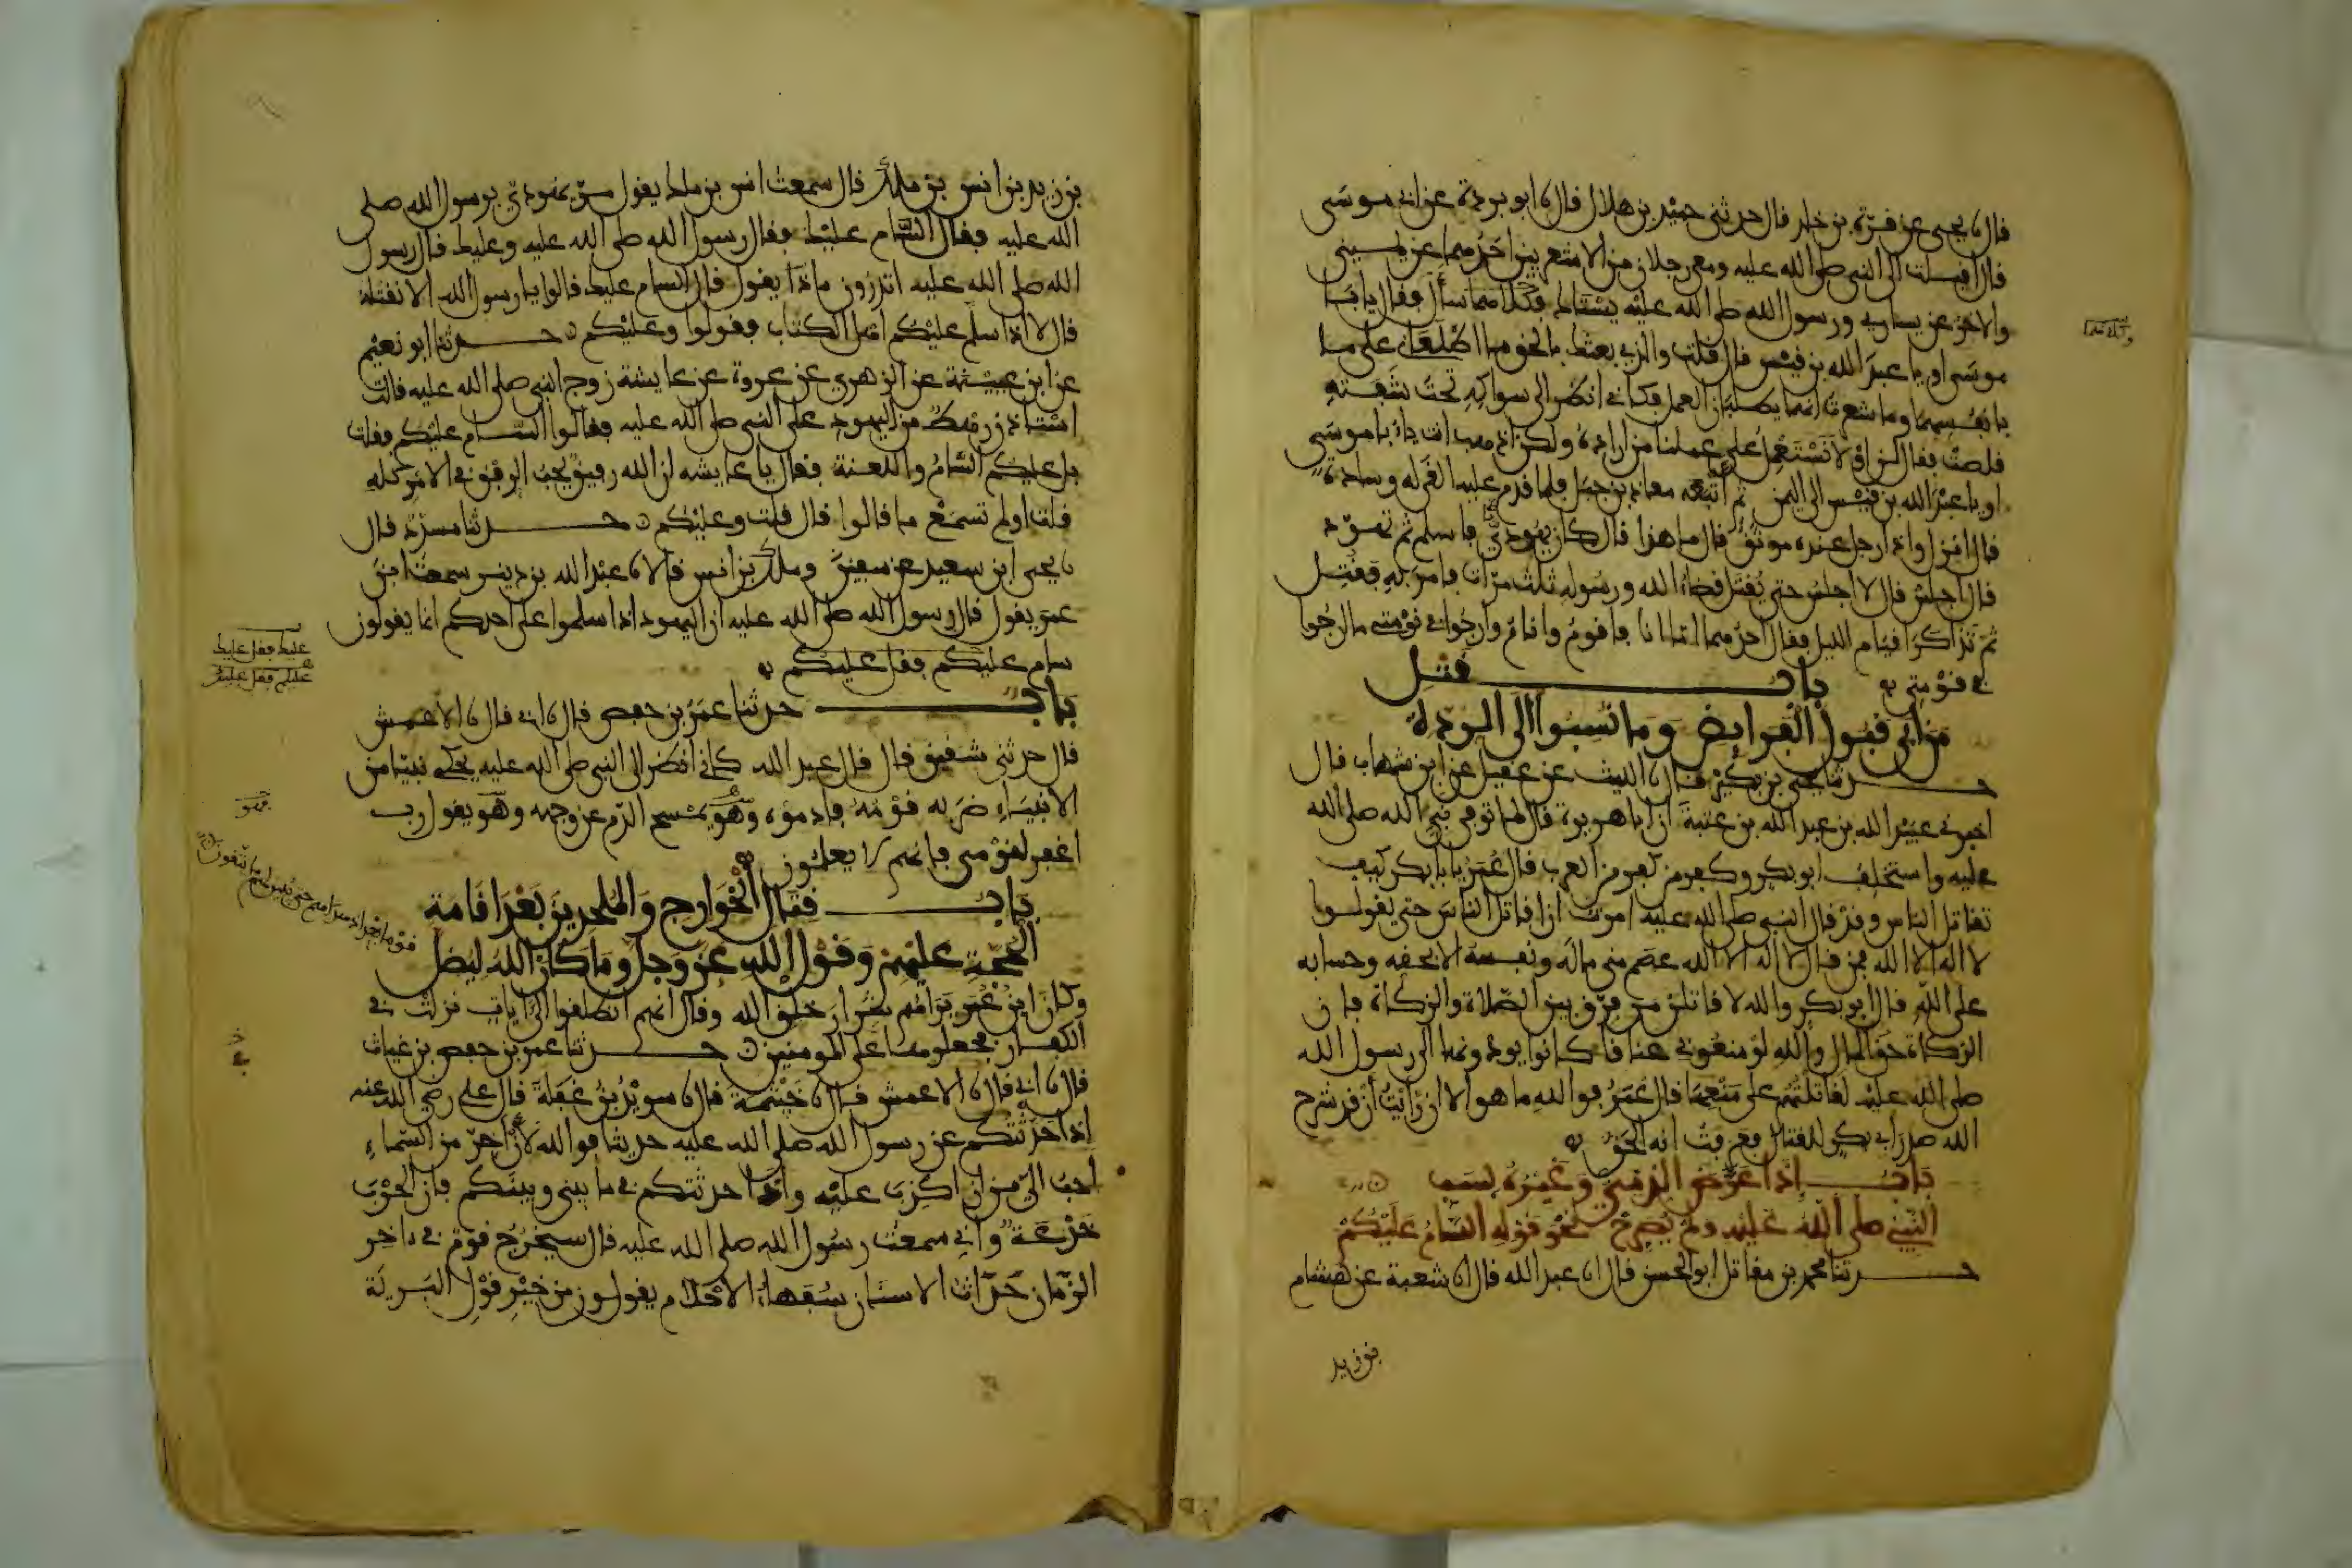 قال نا يحيى عن قرة بن خلد قال حدثني حميد بن هلال قال نا ابو بردة عن ابي موسى
قال اقبلت الى النبي صلى الله عليه ومعي رجلان من الاشعريين احدهما عن يميني
والاخر عن يساري ورسول الله صلى الله عليه يستاك فكلاهما سأل فقال يابا
موسى او يا عبد الله بن قيس قال قلت والذي بعثك بالحق ما اطلعاني على ما
في انفسهما وما شعرت انهما يطلبان العمل فكاني انظر الى سواكه تحت شفته
قلصت فقال لن او لا نستعمل على عملنا من اراده ولكن اذهب انت يا ابا موسى
او يا عبد الله بن قيس الى اليمن ثم أتبعه معاذ بن جبل فلما قدم عليه القى له وسادة
قال انزل واذا رجل عنده موثق قال ما هذا قال كان يهوديا فاسلم ثم تهود
قال اجلس قال لا اجلس حتى يقتل قضاء الله ورسوله ثلث مرات فامر به فقتل
ثم تذاكرا قيام الليل فقال احدهما اما انا فاقوم وانام وارجوا في نومتي ما ارجوا
في قومتي
باب قتل
من ابى قبول الفرايض وما نسبوا الى الردة
حدثنا يحيى بن بكير قال نا الليث عن عقيل عن ابن شهاب قال
اخبرني عبيد الله بن عبد الله بن عتبة ان ابا هريرة قال لما توفي نبي الله صلى الله
عليه واستخلف ابو بكر وكفر من كفر من العرب قال عمر يا ابا بكر كيف
تقاتل الناس وقد قال النبي صلى الله عليه امرت ان اقاتل الناس حتى يقولوا
لا اله الا الله فمن قال لا اله الا الله عصم مني ماله ونفسه الا بحقه وحسابه
على الله قال ابو بكر والله لاقاتلن من فرق بين الصلاة والزكاة فان
الزكاة حق المال والله لو منعوني عناقا كانوا يودونها الى رسول الله
صلى الله عليه لقاتلتهم على منعها قال عمر فوالله ما هو الا ان رايت ان قد شرح
الله صدر ابي بكر للقتال فعرفت انه الحق
باب اذا عرض الذمي وغيره بسب
النبي صلى الله عليه ولم يصرح نحو قوله السام عليكم
حدثنا محمد بن مقاتل ابو الحسن قال انا عبد الله قال انا شعبة عن هشام
بن زيد
بن زيد بن انس بن ملك قال سمعت انس بن ملك يقول مر يهودي برسول الله صلى
الله عليه فقال السام عليك فقال رسول الله صلى الله عليه وعليك فقال رسول
الله صلى الله عليه اتدرون ماذا يقول قال السام عليك قالوا يا رسول الله الا نقتله
قال لا اذا سلم عليكم اهل الكتاب فقولوا وعليكم حدثنا ابو نعيم
عن ابن عيينة عن الزهري عن عروة عن عايشة زوج النبي صلى الله عليه قالت
استاذن رهط من اليهود على النبي صلى الله عليه فقالوا السام عليكم فقلت
بل عليكم السام واللعنة فقال يا عايشه ان الله رفيق يحب الرفق في الامر كله
قلت اولم تسمع ما قالوا قال قلت وعليكم حدثنا مسدد قال
نا يحيى ابن سعيد عن سفين وملك بن انس قالا نا عبد الله بن دينر سمعت ابن
عمر يقول قال رسول الله صلى الله عليه ان اليهود اذا سلموا على احدكم انما يقولون
سام عليكم فقل عليكم
عليك فقل عليك
عليكم فقل عليكم
باب حدثنا عمر بن حفص قال نا ابي قال نا الاعمش
قال حدثني شقيق قال قال عبد الله كاني انظر الى النبي صلى الله عليه يحكي نبيا من
الانبياء ضربه قومه فادموه وهو يمسح الدم عن وجهه وهو يقول رب
فهو
اغفر لقومي فانهم لا يعلمون
باب قتال الخوارج والملحدين بعد اقامة
الحجة عليهم وقول الله عز وجل وما كان الله ليضل
قوما بعد اذ هداهم حتى يبين لهم ما يتقون
وكان ابن عمر يراهم شرار خلق الله وقال انهم انطلقوا الى ايات نزلت في
الكفار فجعلوها على المومنين حدثنا عمر بن حفص بن غياث
قال نا ابي قال نا الاعمش قال نا خيثمة قال نا سويد بن غفلة قال علي رضي الله عنه
اذا حدثتكم عن رسول الله صلى الله عليه حديثا فوالله لان اخر من السماء
احب الي من ان اكذب عليه واذا حدثتكم في ما بيني وبينكم فان الحرب
خدعة واني سمعت رسول الله صلى الله عليه قال سيخرج قوم في اخر
الزمان حداث الاسنان سفهاء الاحلام يقولون من خير قول البرية